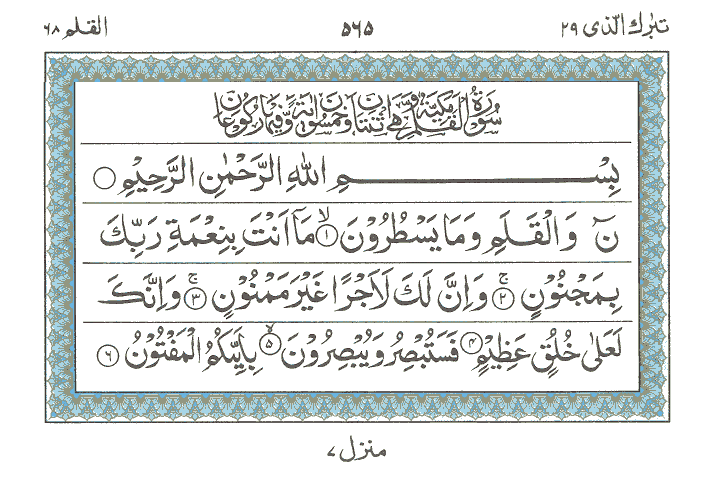 تبٰرك الّذی ۲۹ ۵۶۵ القلم ۶۸
سُوۡرَةُ الۡقَلَمِ مَكِّيَّةٌ وَّهِيَ اثۡنَتَانِ وَخَمۡسُوۡنَ اٰيَةً وَّفِيۡهَا رُكُوۡعَانِ
بِسۡمِ اللّٰهِ الرَّحۡمٰنِ الرَّحِيۡمِ
نٓ وَالۡقَلَمِ وَمَا يَسۡطُرُوۡنَ ۙ﴿۱﴾ مَاۤ اَنۡتَ بِنِعۡمَةِ رَبِّكَ
بِمَجۡنُوۡنٍ ۚ﴿۲﴾ وَاِنَّ لَكَ لَاَجۡرًا غَيۡرَ مَمۡنُوۡنٍ ۚ﴿۳﴾ وَاِنَّكَ
لَعَلٰى خُلُقٍ عَظِيۡمٍ ﴿۴﴾ فَسَتُبۡصِرُ وَيُبۡصِرُوۡنَ ۙ﴿۵﴾ بِاَيِّٮكُمُ الۡمَفۡتُوۡنُ ﴿۶﴾
منزل ۷